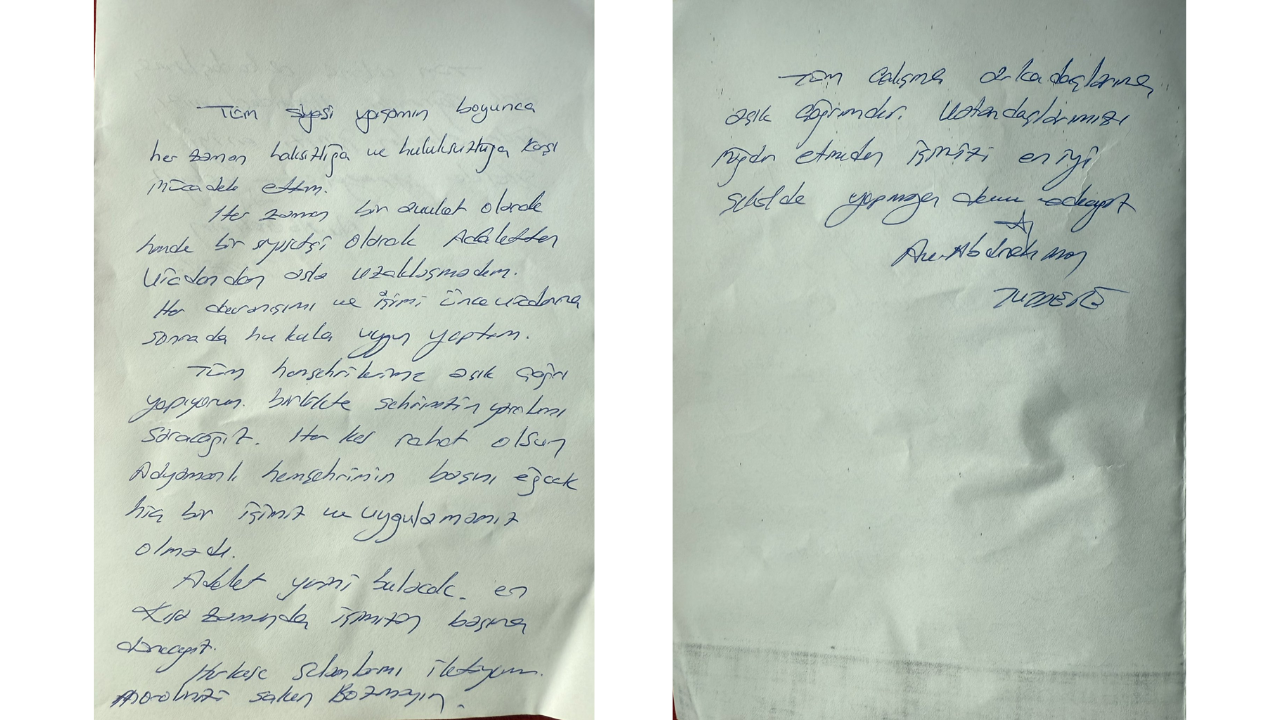 Tüm siyasi yaşamım boyunca
her zaman haksızlığa ve hukuksuzluğa karşı
mücadele ettim.
Her zaman bir avukat olarak
hemde bir siyasetçi olarak Adaletten
Vicdandan asla uzaklaşmadım.
Her davranışımı ve işimi önce vicdanıma
sonrada hukuka uygun yaptım.
Tüm hemşehrilerime açık çağrı
yapıyorum. birlikte şehrimizin yaralarını
saracağız. Herkes rahat olsun
Adıyamanlı hemşehrimin başını eğecek
hiç bir işimiz ve uygulamamız
olmadı.
Adalet yerini bulacak. en
kısa zamanda işimizin başına
döneceğiz.
Herkese selamlarımı iletiyorum.
Moralinizi sakın Bozmayın.
Tüm çalışma arkadaşlarıma
açık çağrımdır. Vatandaşlarımızı
mağdur etmeden işimizi en iyi
şekilde yapmaya devam edeceğiz
Av. Abdurrahman
TUTDERE